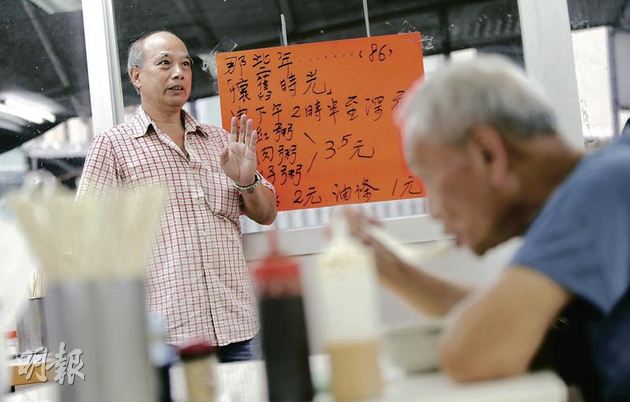 那些年........(86)
「懷舊時光」
下午2時半至深
紅粥
肉粥 〉3.5元
粥
2元 油條 1元
明報